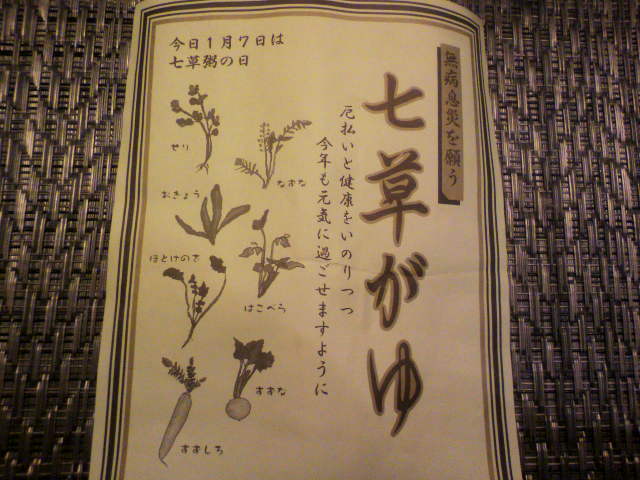 無病息災を願う
七草がゆ
厄払いと健康をいのりつつ
今年も元気に過ごせますように
今日1月7日は
七草粥の日
せり
なずな
おぎょう
ほとけのざ
はこべら
すずな
すずしろ